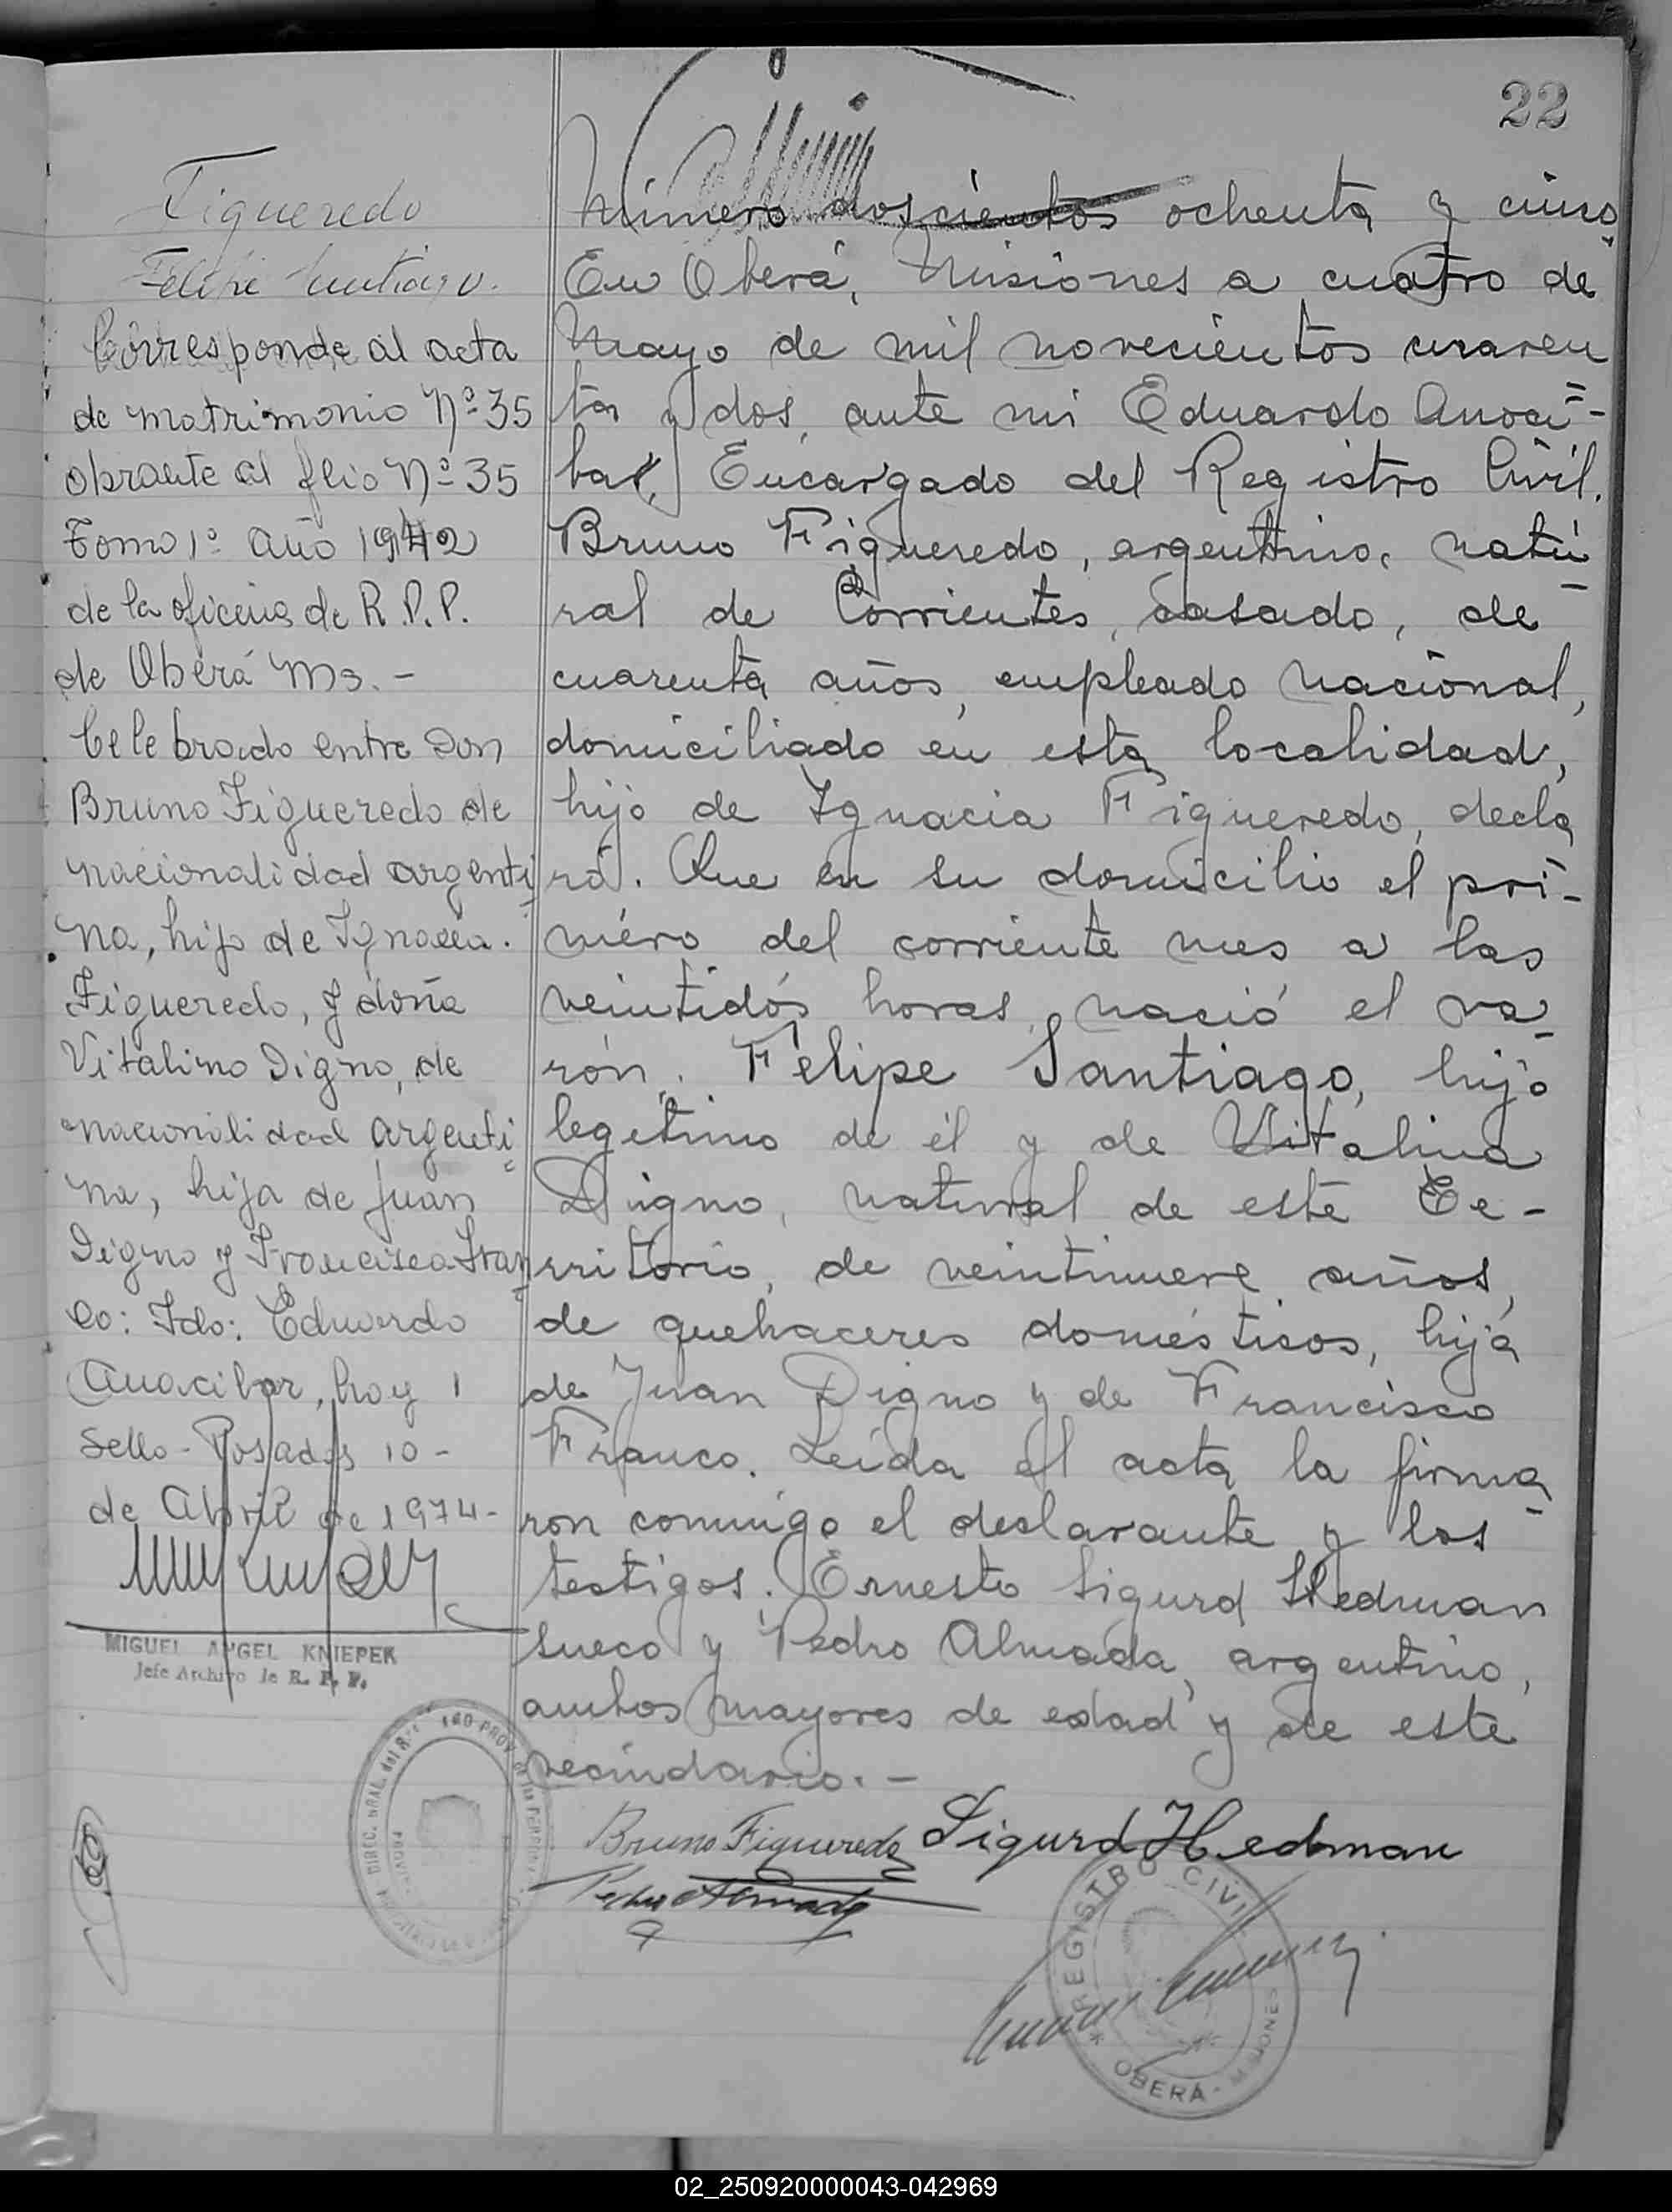 22
Figueredo
Felipe Santiago.
Corresponde al acta
de matrimonio Nº 35
obrante al flio Nº 35
Tomo 1º año 1942
de la oficina de R.P.P.
de Oberá Ms. -
Celebrado entre Don
Bruno Figueredo de
nacionalidad argenti
na, hijo de Ignacia.
Figueredo, y doña
Vitalino Digno, de
nacionalidad argenti
na, hija de Juan
Digno y Francisca Fran
co: Fdo: Eduardo
Anacibar, hay 1
Sello - Posadas 10 -
de Abril de 1974 -
MIGUEL ANGEL KNIEPEK
Jefe Archivo de R. P. P.
Número doscientos ochenta y cinco
En Oberá, Misiones a cuatro de
Mayo de mil novecientos cuaren
ta y dos, ante mi Eduardo Anoci-
bar, Encargado del Registro Civil.
Bruno Figueredo, argentino, natu
ral de Corrientes, casado, de
cuarenta años, empleado nacional,
domiciliado en esta localidad,
hijo de Ignacia Figueredo, decla
ró. Que en su domicilio el pri-
mero del corriente mes a las
veintidós horas, nació el va-
rón. Felipe Santiago, hijo
legítimo de él y de Vitalina
Digno, natural de este Te-
rritorio, de veintinueve años,
de quehaceres domésticos, hija
de Juan Digno y de Francisca
Franco. Leída el acta la firma
ron conmigo el declarante y los
testigos. Ernesto Sigurd Hedman
sueco y Pedro Almada, argentino,
ambos mayores de edad y de este
vecindario. -
Bruno Figueredo Sigurd Hedman
Pedro Almada
REGISTRO CIVIL
OBERÁ - MISIONES
02_250920000043-042969